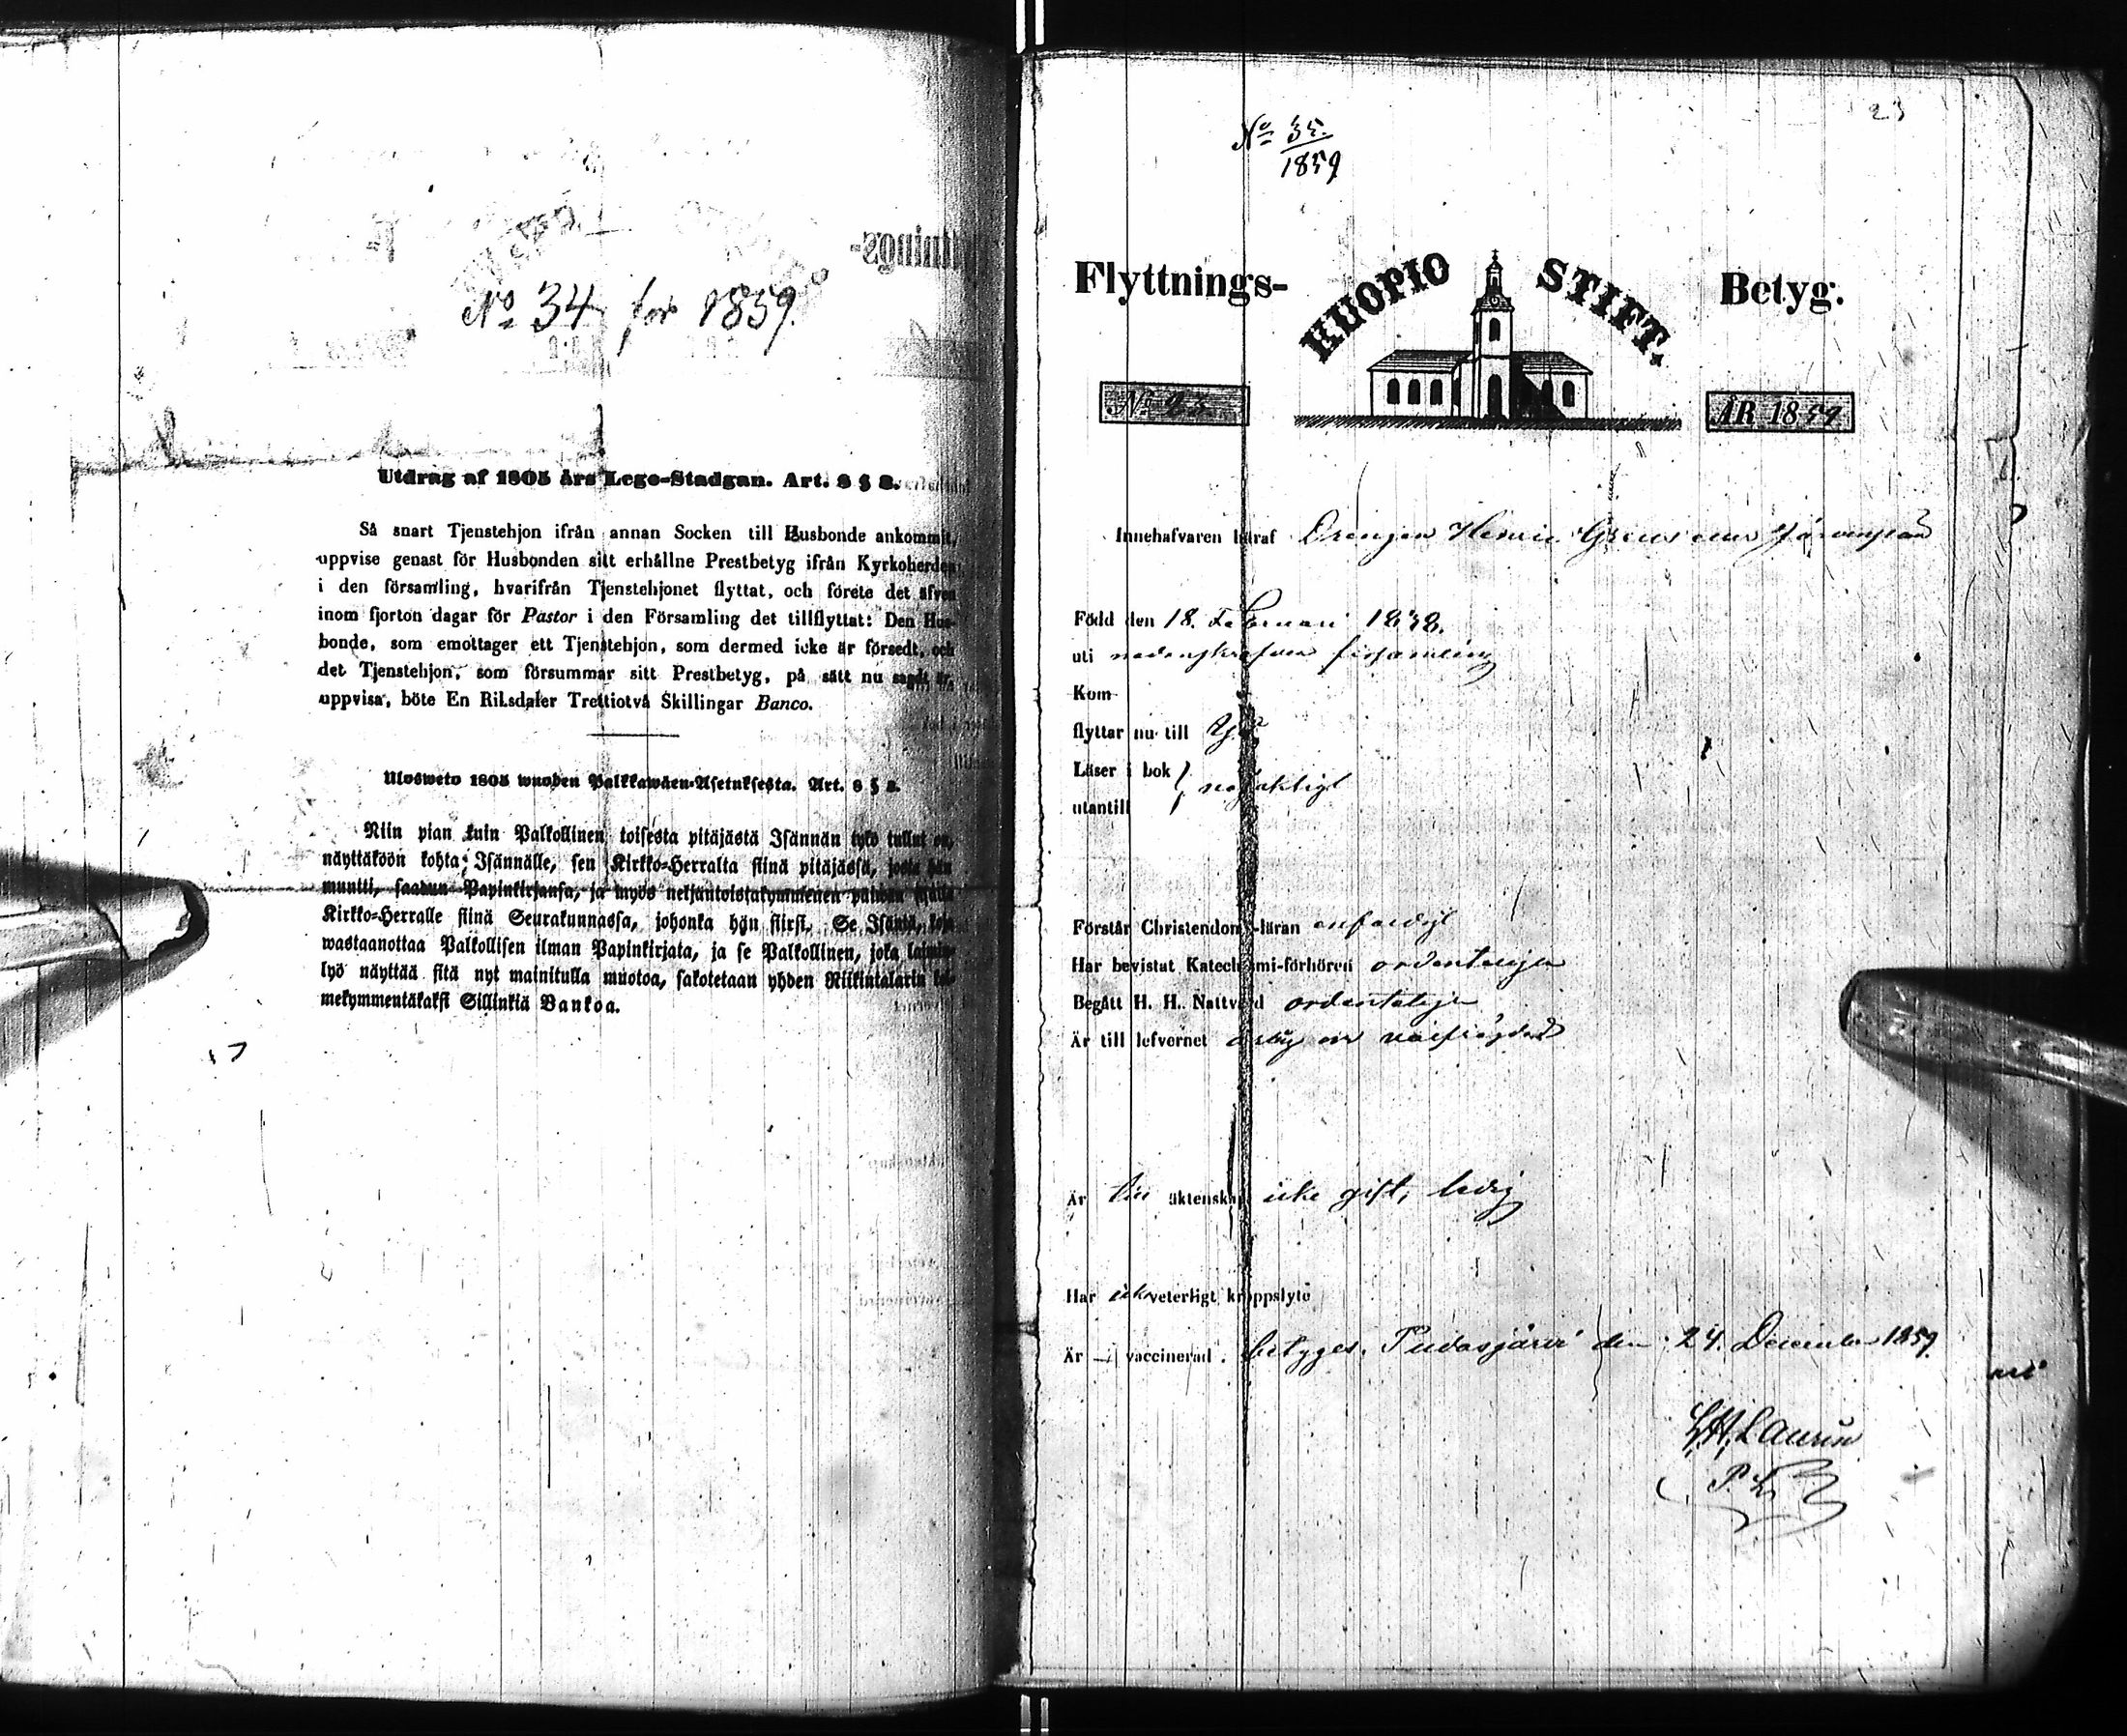 No 34 for 1859.
Utdrag af 1805 års Lego-Stadgan. Art. 8 § 8.
Så snart Tjenstehjon ifrån annan Socken till Husbonde ankommit,
uppvise genast för Husbonden sitt erhållne Prestbetyg ifrån Kyrkoherden
i den församling, hvarifrån Tjenstehjonet flyttat, och förete det äfven
inom fjorton dagar för Pastor i den Församling det tillflyttat: Den Hus-
bonde, som emottager ett Tjenstehjon, som dermed icke är försedt, och
det Tjenstehjon, som försummar sitt Prestbetyg, på sätt nu sagdt är,
uppvisa, böte En Riksdaler Trettiotvå Skillingar Banco.
Ulosweto 1805 wuoden Palkkawäen-Asetuksesta. Art. 8 § 8.
Niin pian kuin Palkollinen toisesta pitäjästä Isännän tykö tullut on,
näyttäköön kohta Isännälle, sen Kirkko-Herralta siinä pitäjässä, josta hän
muutti, saadun Papinkirjansa, ja myös neljäntoistakymmenen päiwän sisällä
Kirkko-Herralle siinä Seurakunnassa, johonka hän siirsi. Se Isäntä, joka
wastaanottaa Palkollisen ilman Papinkirjata, ja se Palkollinen, joka laimin-
lyö näyttää sitä nyt mainitulla muotoa, sakotetaan yhden Riikintalarin kol-
mekymmentäkaksi Sillinkiä Bankoa.
23
No 35.
1859
Flyttnings- KUOPIO STIFT. Betyg.
No 23. ÅR 1859
Innehafvaren häraf Drengen Henric
Född den 18. Februari 1838.
uti församling
Kom
flyttar nu till
Läser i bok
utantill
Förstår Christendoms-läran enfaldigt
Har bevistat Katechismi-förhören ordentligen
Begått H. H. Nattvard ordentligen
Är till lefvernet ärlig och välfrägdad
Är till äktenskap icke gift, ledig
Har icke veterligt kroppslyte
Är vaccinerad. betyges. Pudasjärvi den 24. December 1859.
Laurin